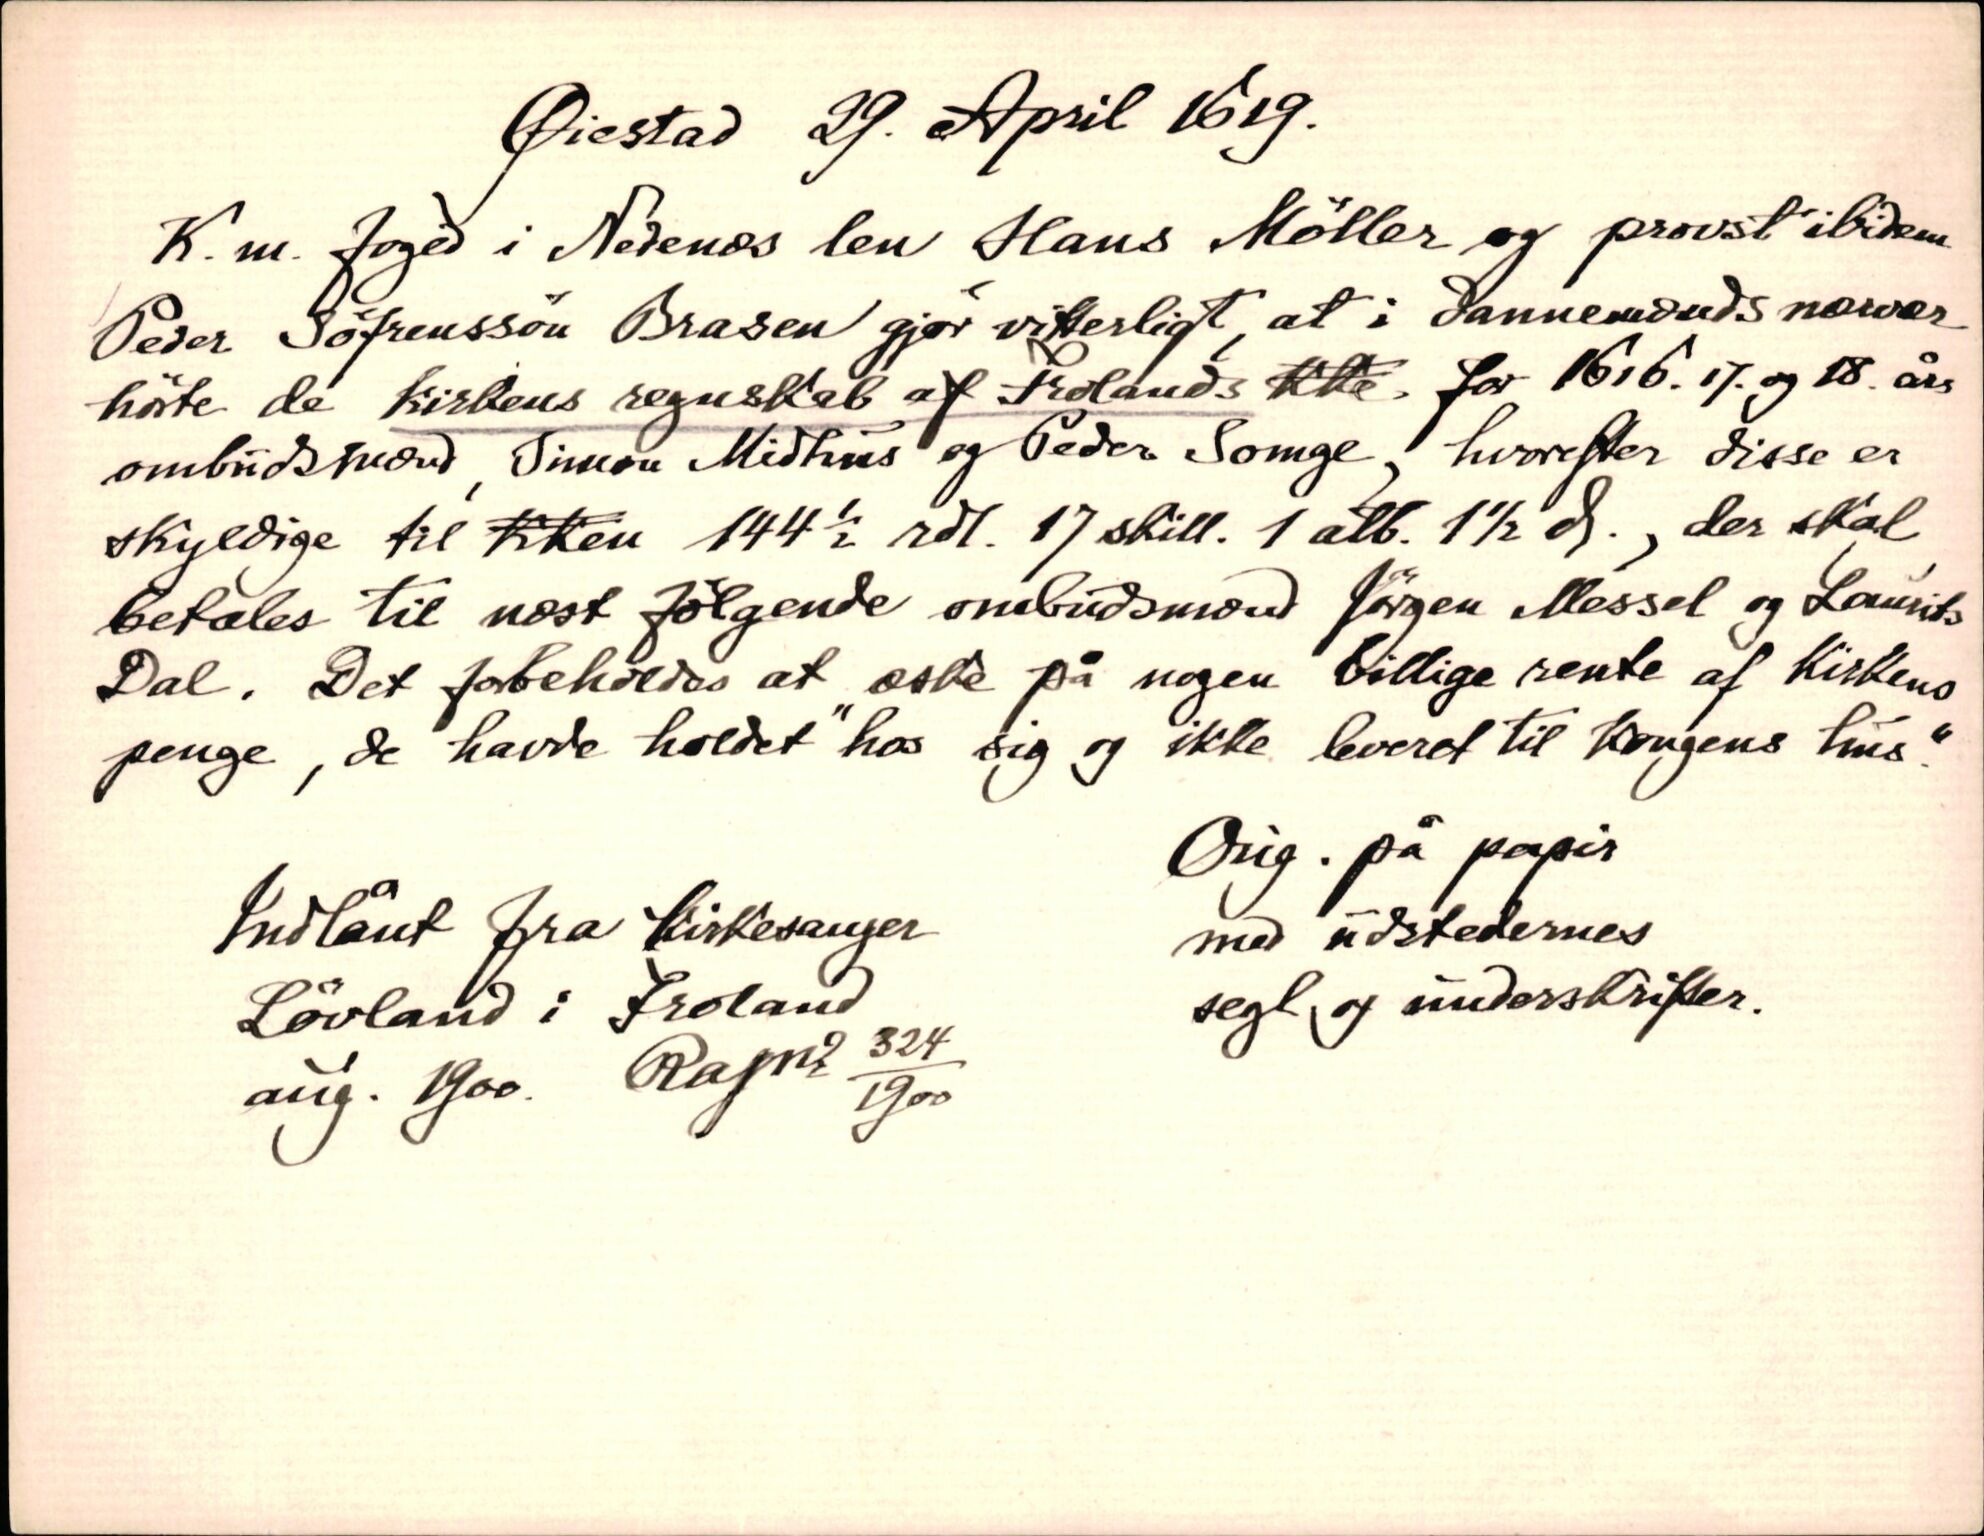 Øiestad 29. April 1619.
K. m. foged i Nedenæs len Hans Möller og provst ibidem
Peder Söfrenssön Brasen gjör vitterligt, at i dannemænds nærvær
hörte de kirkens regnskab af Frolands kke. for 1616. 17. og 18. års
ombudsmænd, Simon Midhus og Peder Somge, hvorefter disse er
skyldige til kken 144 1/2 rdl. 17 skill. 1 alb. 1 1/2 ₰., der skal
betales til næst fölgende ombudsmænd Jörgen Messel og Laurits
Dal. Det forbeholdes at æske på nogen billige rente af kirkens
penge, de havde holdet "hos sig og ikke leveret til kongens hus."
Orig. på papir
med udstedernes
segl og underskrifter.
Indlånt fra kirkesanger
Lövland i Froland
aug. 1900. Ra j№ 324/1900